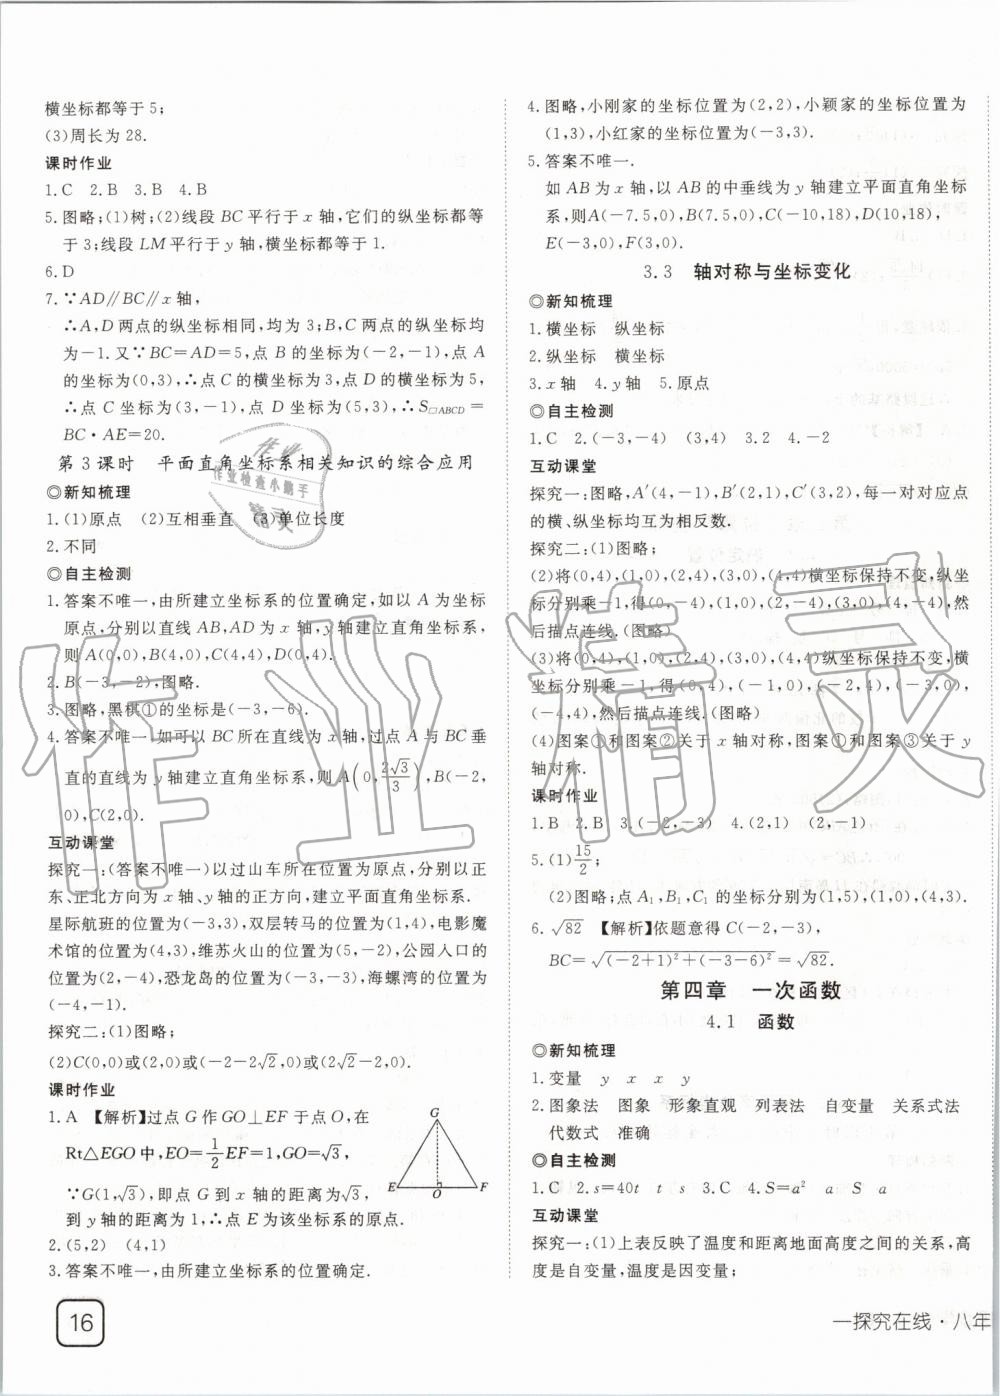 横坐标都等于5;
(3)周长为28.
课时作业
1.C 2.B 3.B 4.B
5.图略;(1)树;(2)线段BC平行于x轴,它们的纵坐标都等
于3;线段LM平行于y轴,横坐标都等于1.
6.D
7.∵AD∥BC∥x轴,
∴A,D两点的纵坐标相同,均为3;B,C两点的纵坐标均
为-1.又∵BC=AD=5,点B的坐标为(-2,-1),点A
的坐标为(0,3),∴点C的横坐标为3,点D的横坐标为5,
∴点C坐标为(3,-1),点D坐标为(5,3),∴S□ABCD=
BC·AE=20.
第3课时 平面直角坐标系相关知识的综合应用
◎新知梳理
1.(1)原点 (2)互相垂直 (3)单位长度
2.不同
◎自主检测
1.答案不唯一,由所建立坐标系的位置确定,如以A为坐标
原点,分别以直线AB,AD为x轴,y轴建立直角坐标系,
则A(0,0),B(4,0),C(4,4),D(0,4).
2.B(-3,-2),图略.
3.图略,黑棋①的坐标是(-3,-6).
4.答案不唯一,如可以BC所在直线为x轴,过点A与BC垂
直的直线为y轴建立直角坐标系,则A(0,2√3/3),B(-2,
0),C(2,0).
互动课堂
探究一:(答案不唯一)以过山车所在位置为原点,分别以正
东、正北方向为x轴、y轴的正方向,建立平面直角坐标系.
星际航班的位置为(-3,3),双层转马的位置为(1,4),电影魔
术馆的位置为(4,3),维苏火山的位置为(5,-2),公园入口的
位置为(2,-4),恐龙岛的位置为(-3,-3),海螺湾的位置为
(-4,-1).
探究二:(1)图略;
(2)C(0,0)或(2,0)或(-2-2√2,0)或(2√2-2,0).
课时作业
1.A 【解析】过点G作GO⊥EF于点O,在
Rt△EGO中,EO=1/2EF=1,GO=√3.
∵G(1,√3),即点G到x轴的距离为√3,
到y轴的距离为1,∴点E为该坐标系的原点.
G
E O F
2.(5,2) (4,1)
3.答案不唯一,由所建立坐标系的位置确定.
16
4.图略,小刚家的坐标位置为(2,2),小颖家的坐标位置为
(1,3),小红家的坐标位置为(-3,3).
5.答案不唯一.
如AB为x轴,以AB的中垂线为y轴建立平面直角坐标
系,则A(-7.5,0),B(7.5,0),C(-10,18),D(10,18),
E(-3,0),F(3,0).
3.3 轴对称与坐标变化
◎新知梳理
1.横坐标 纵坐标
2.纵坐标 横坐标
3.x轴 4.y轴 5.原点
◎自主检测
1.C 2.(-3,-4) (3,4) 3.2 4.-2
互动课堂
探究一:图略,A′(4,-1),B′(2,1),C′(3,2),每一对对应点
的横、纵坐标均互为相反数.
探究二:(1)图略;
(2)将(0,4),(1,0),(2,4),(3,0),(4,4)横坐标保持不变,纵坐
标分别乘-1,得(0,-4),(1,0),(2,-4),(3,0),(4,-4),然
后描点连线.(图略)
(3)将(0,4),(1,0),(2,4),(3,0),(4,4)纵坐标保持不变,横
坐标分别乘-1,得(0,4),(-1,0),(-2,4),(-3,0),
(-4,4),然后描点连线.(图略)
(4)图案①和图案②关于x轴对称,图案①和图案③关于y
轴对称.
课时作业
1.B 2.B 3.(-2,-3) 4.(2,1) (2,-1)
5.(1)15/2;
(2)图略;点A₁,B₁,C₁的坐标分别为(1,5),(1,0),(4,3).
6.√82 【解析】依题意得C(-2,-3),
BC=√((-2+1)²+(-3-6)²)=√82.
第四章 一次函数
4.1 函数
◎新知梳理
1.变量 y x x y
2.图象法 图象 形象直观 列表法 自变量 关系式法
代数式 准确
◎自主检测
1.C 2.s=40t t s 3.C 4.S=a² a S a
互动课堂
探究一:(1)上表反映了温度和距离地面高度之间的关系,高
度是自变量,温度是因变量;
一探究在线·八年
作业
作业检查小帮手
精灵
作业精灵